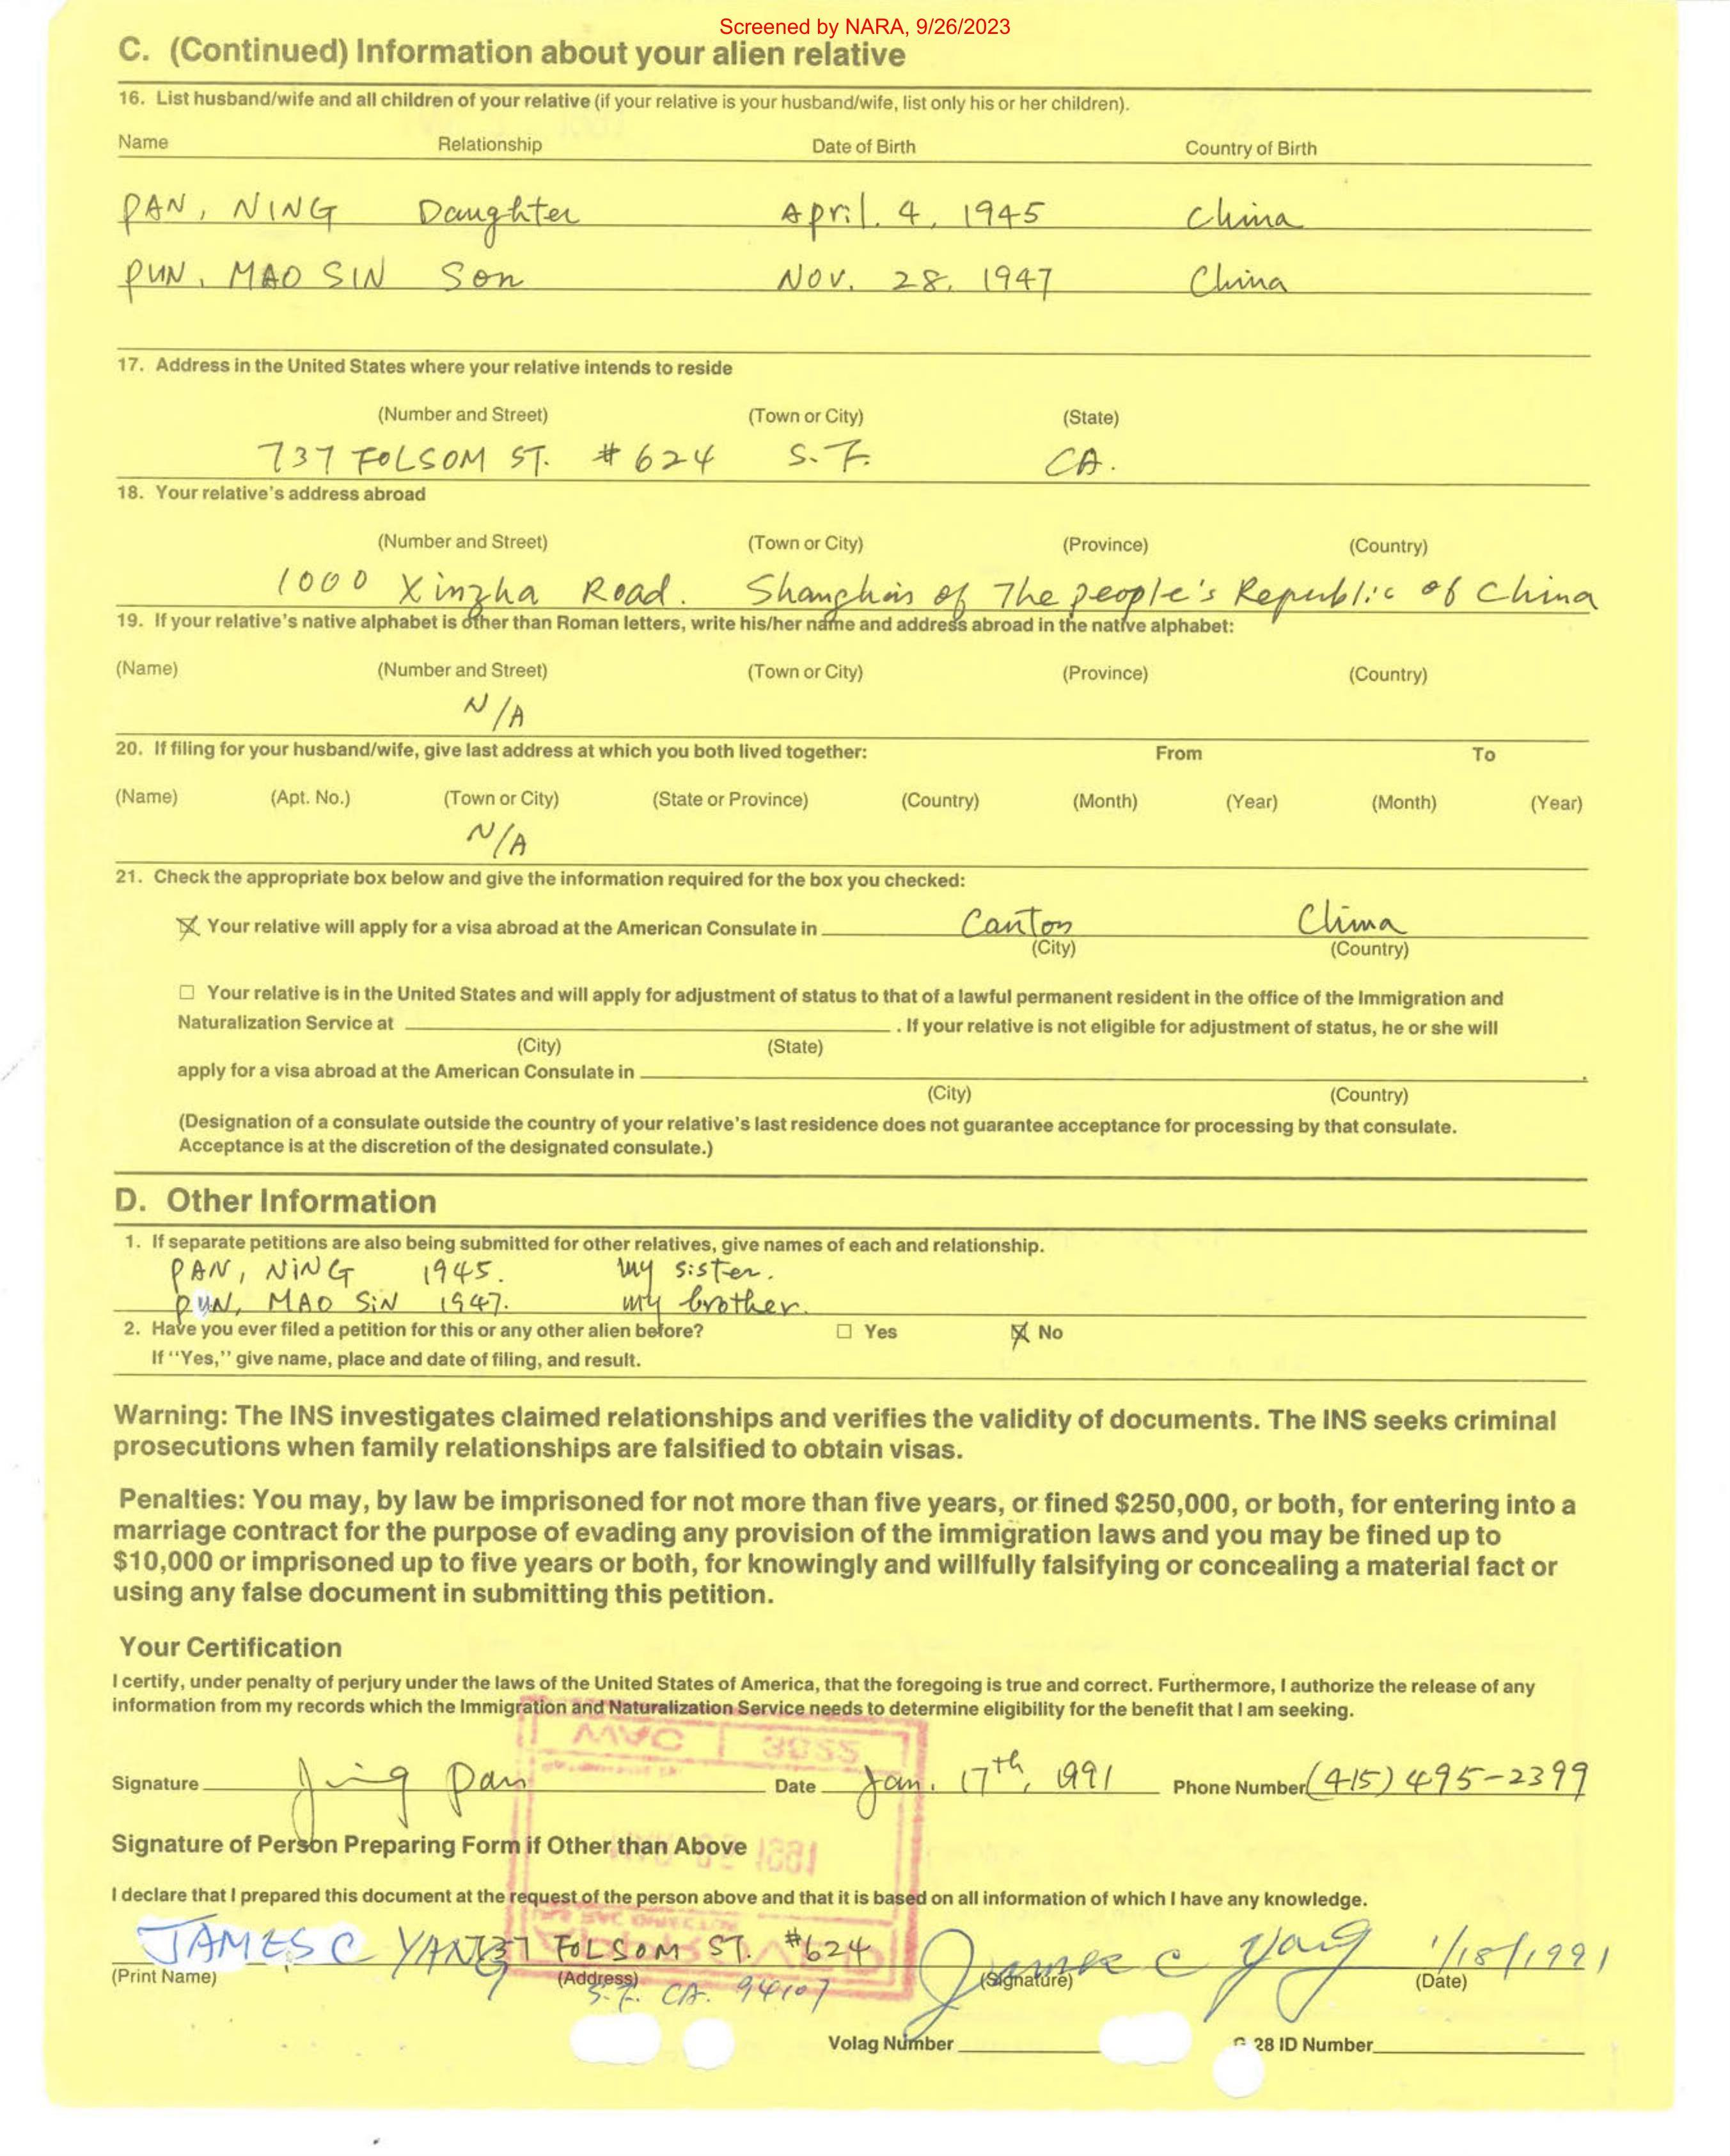 Screened by NARA, 9/26/2023
C. (Continued) Information about your alien relative
16. List husband/wife and all children of your relative (if your relative is your husband/wife, list only his or her children).
Name Relationship Date of Birth Country of Birth
PAN, NING Daughter April. 4, 1945 China
PUN, MAO SIN Son NOV. 28, 1947 China
17. Address in the United States where your relative intends to reside
(Number and Street) (Town or City) (State)
737 FOLSOM ST. #624 S.F. CA.
18. Your relative's address abroad
(Number and Street) (Town or City) (Province) (Country)
1000 Xinzha Road. of The people's Republic of China
19. If your relative's native alphabet is other than Roman letters, write his/her name and address abroad in the native alphabet:
(Name) (Number and Street) (Town or City) (Province) (Country)
N/A
20. If filing for your husband/wife, give last address at which you both lived together: From To
(Name) (Apt. No.) (Town or City) (State or Province) (Country) (Month) (Year) (Month) (Year)
N/A
21. Check the appropriate box below and give the information required for the box you checked:
Your relative will apply for a visa abroad at the American Consulate in Canton China
(City) (Country)
Your relative is in the United States and will apply for adjustment of status to that of a lawful permanent resident in the office of the Immigration and
Naturalization Service at . If your relative is not eligible for adjustment of status, he or she will
(City) (State)
apply for a visa abroad at the American Consulate in .
(City) (Country)
(Designation of a consulate outside the country of your relative's last residence does not guarantee acceptance for processing by that consulate.
Acceptance is at the discretion of the designated consulate.)
D. Other Information
1. If separate petitions are also being submitted for other relatives, give names of each and relationship.
PAN, NiNG 1945. my sister.
PUN, MAO SiN 1947. my brother.
2. Have you ever filed a petition for this or any other alien before? Yes No
If "Yes," give name, place and date of filing, and result.
Warning: The INS investigates claimed relationships and verifies the validity of documents. The INS seeks criminal
prosecutions when family relationships are falsified to obtain visas.
Penalties: You may, by law be imprisoned for not more than five years, or fined $250,000, or both, for entering into a
marriage contract for the purpose of evading any provision of the immigration laws and you may be fined up to
$10,000 or imprisoned up to five years or both, for knowingly and willfully falsifying or concealing a material fact or
using any false document in submitting this petition.
Your Certification
I certify, under penalty of perjury under the laws of the United States of America, that the foregoing is true and correct. Furthermore, I authorize the release of any
information from my records which the Immigration and Naturalization Service needs to determine eligibility for the benefit that I am seeking.
Signature Jing Pan Date Jan. 17th, 1991 Phone Number (415) 495-2399
Signature of Person Preparing Form if Other than Above
I declare that I prepared this document at the request of the person above and that it is based on all information of which I have any knowledge.
JAMES C YANG 737 FOLSOM ST. #624 James C Yang 1/18/1991
(Print Name) (Address) (Signature) (Date)
S.F. CA. 94107
Volag Number 28 ID Number